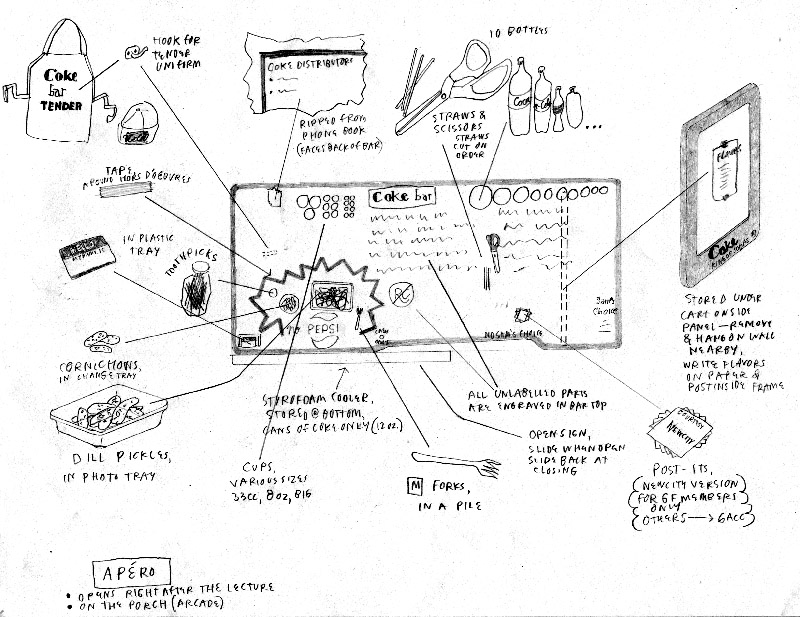 Coke
bar
TENDER
HOOK FOR
TENDER
UNIFORM
COKE DISTRIBUTORS
RIPPED FROM
PHONE BOOK
(FACES BACK OF BAR)
STRAWS &
SCISSORS
STRAWS
CUT ON
ORDER
10 BOTTLES
...
FLAVORS
Coke
STORED UNDER
CART ON SIDE
PANEL—REMOVE
& HANG ON WALL
NEARBY,
WRITE FLAVORS
ON PAPER &
POST INSIDE FRAME
TAPE
AROUND HORS D'OEUVRES
IN PLASTIC
TRAY
TOOTHPICKS
CORNICHONS,
IN CHANGE TRAY
DILL PICKLES,
IN PHOTO TRAY
Coke bar
PEPSI
NOSHA'S CHOICE
Choice
STYROFOAM COOLER,
STORED @ BOTTOM,
CANS OF COKE ONLY (12 OZ)
CUPS,
VARIOUS SIZES
33CC, 8 OZ, BIG
M FORKS,
IN A PILE
ALL UNLABELLED PARTS
ARE ENGRAVED IN BAR TOP
OPEN SIGN,
SLIDE WHEN OPEN
SLIDE BACK AT
CLOSING
NEWCITY
POST-ITS,
(NEWCITY VERSION)
(FOR GF MEMBERS)
(ONLY)
(OTHERS → GACC)
APÉRO
• OPENS RIGHT AFTER THE LECTURE
• ON THE PORCH (ARCADE)